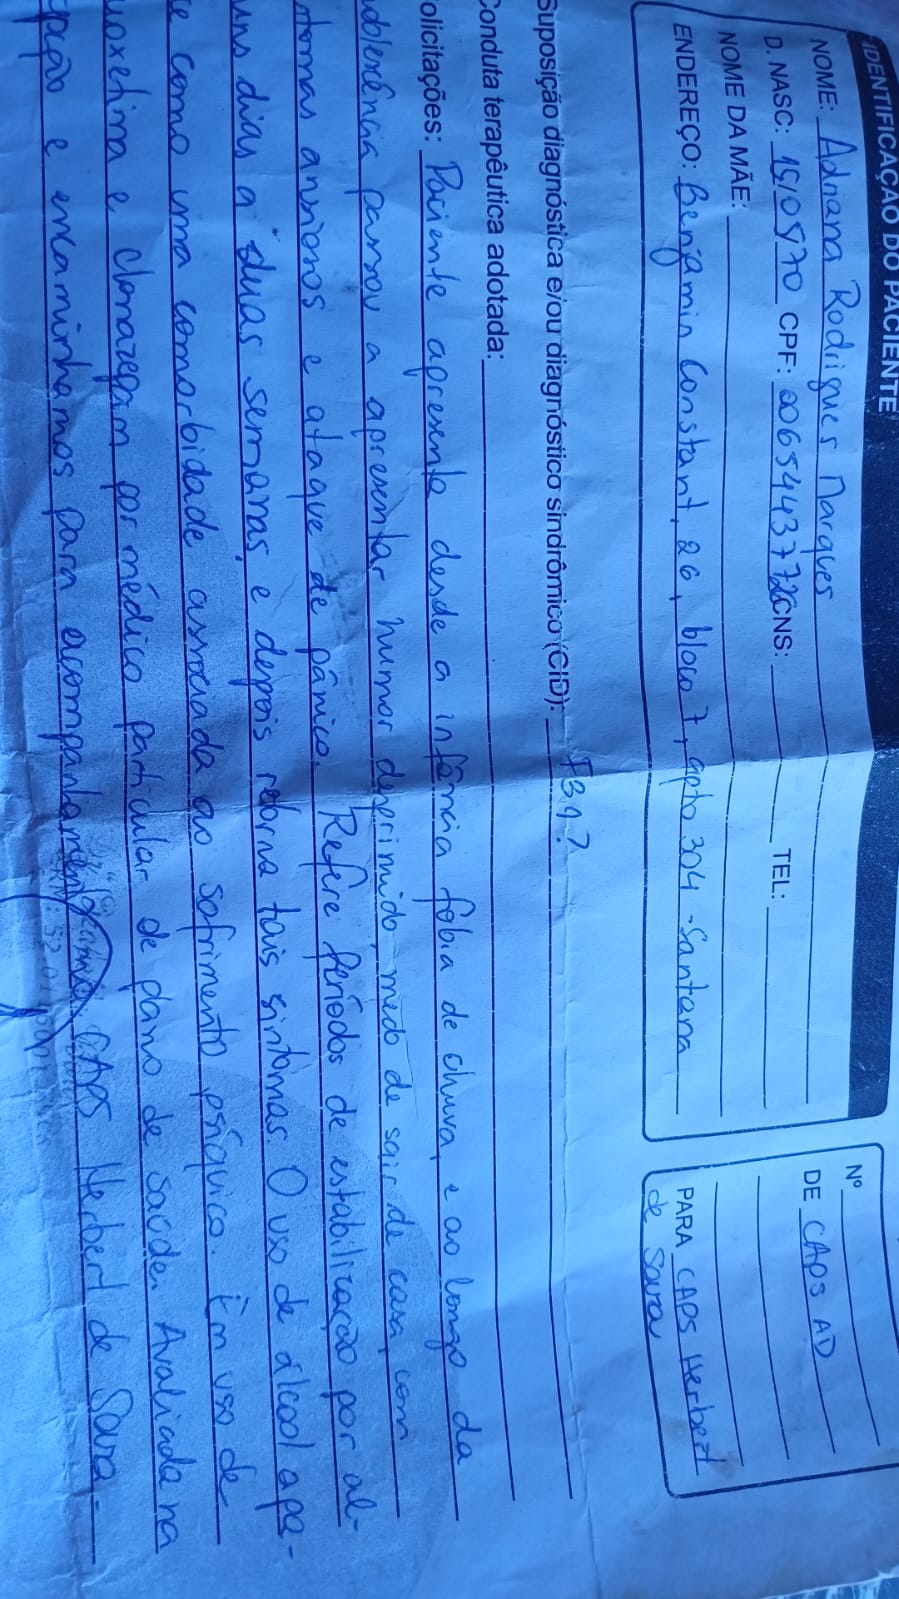 IDENTIFICAÇÃO DO PACIENTE
NOME: Adriana Rodrigues Marques
D. NASC: 15/05/70 CPF: CNS: TEL:
NOME DA MÃE:
ENDEREÇO: Benjamin Constant, 26, bloco 7, apto 304 - Santana
Nº
DE CAPS AD
PARA CAPS Herbert
de Souza
Suposição diagnóstica e/ou diagnóstico sindrômico (CID):
Conduta terapêutica adotada:
olicitações: Paciente apresenta desde a infância fobia de chuva, e ao longo da
dolescência passou a apresentar humor deprimido, medo de sair de casa, com
ntomas ansiosos e ataque de pânico. Refere períodos de estabilização por al-
uns dias a duas semanas, e depois retorna tais sintomas. O uso de álcool apa-
ce como uma comorbidade associada ao sofrimento psíquico. Em uso de
uoxetina e clonazepam por médico particular de plano de saúde. Avaliada na
pção e encaminhamos para acompanhamento CAPS Herbert de Souza-